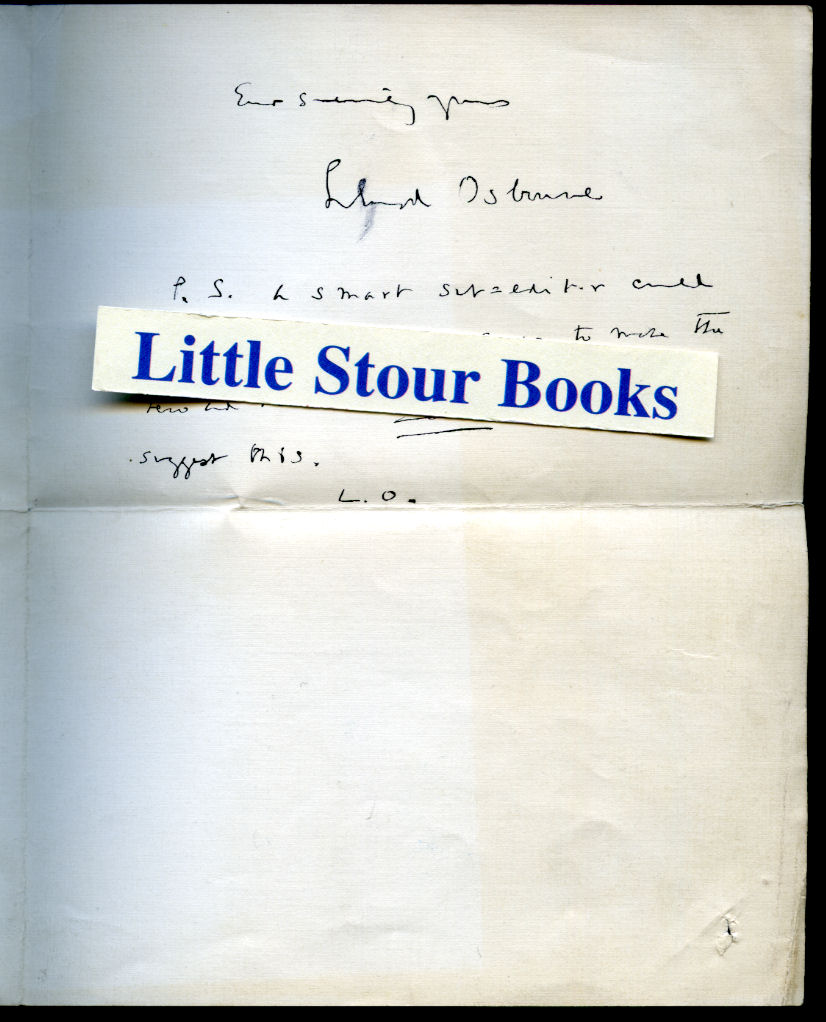 Ever sincerely yours
Lloyd Osbourne
P. S. A smart sub=editor could
to make the
Little Stour Books
suggest this.
L. O.